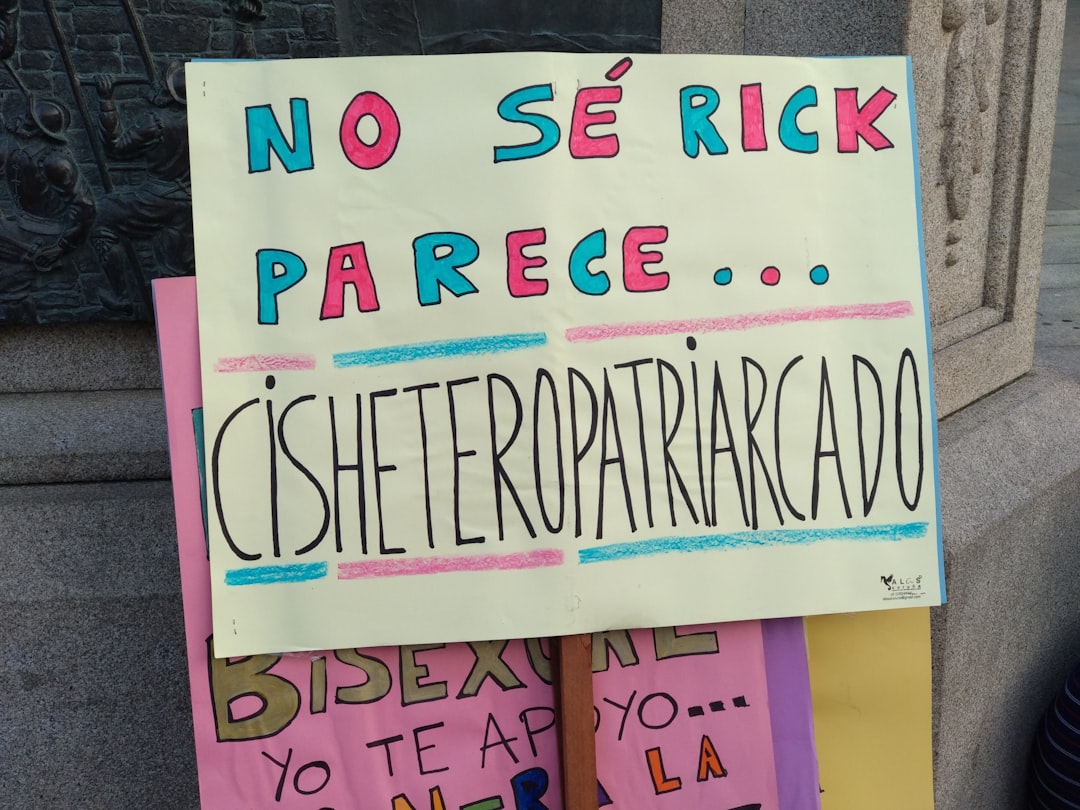 NO SÉ RICK
PARECE...
CISHETEROPATRIARCADO
ALAS
CORUÑA
BISEXUAL
YO TE APOYO...
LA